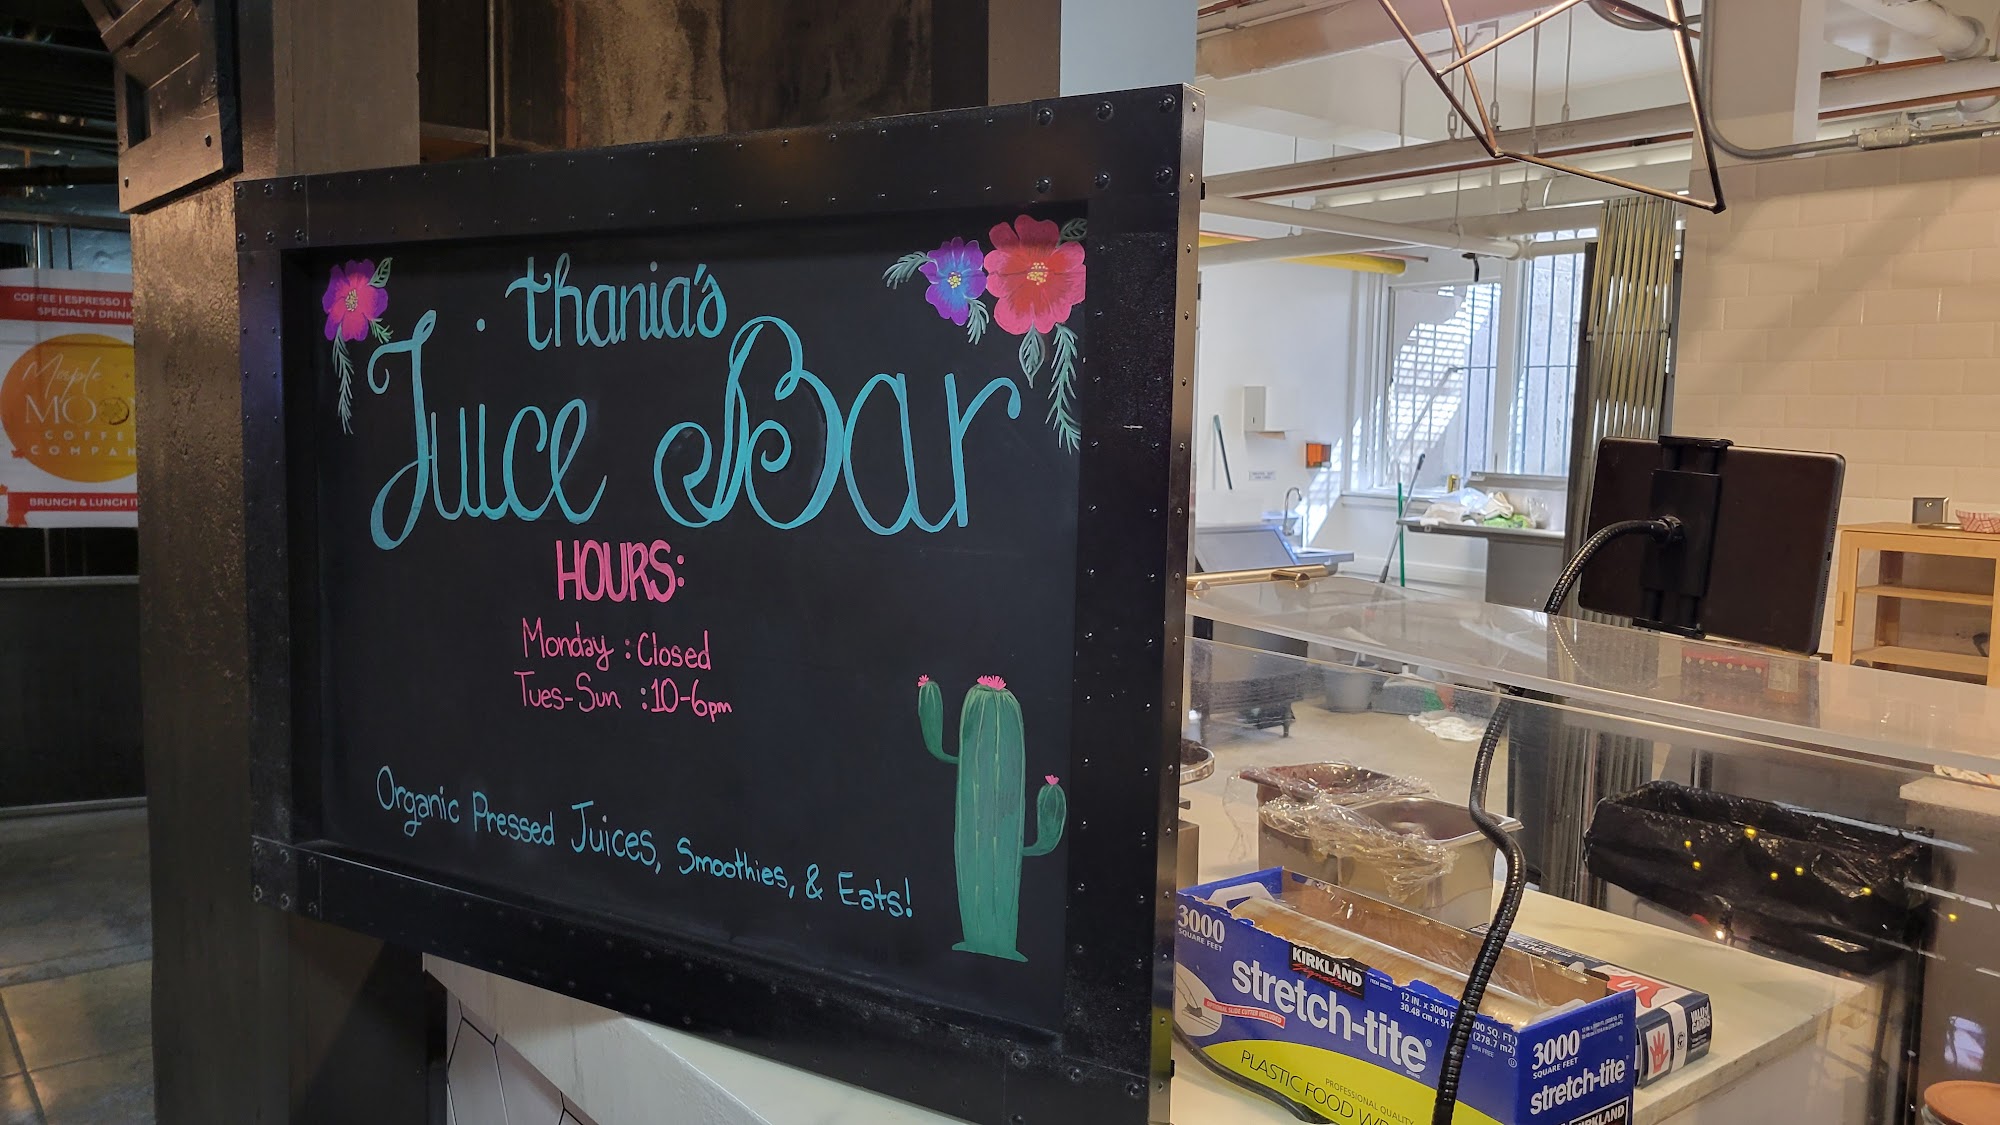 thania's
Juice Bar
HOURS:
Monday : Closed
Tues-Sun : 10-6pm
Organic Pressed Juices, Smoothies, & Eats!
COFFEE | ESPRESSO |
SPECIALTY DRINK
Maple
MOON
COFFEE
COMPAN
BRUNCH & LUNCH IT
3000
SQUARE FEET
KIRKLAND
Signature
stretch-tite
12 IN. x 3000
30.48 cm x 91
SQ. FT.)
(278.7 m2)
BPA FREE
SLIDE CUTTER INCLUDED
PROFESSIONAL QUALITY
PLASTIC FOOD WR
3000
SQUARE FEET
stretch-tite
KIRKLAND
VALU
GARDS